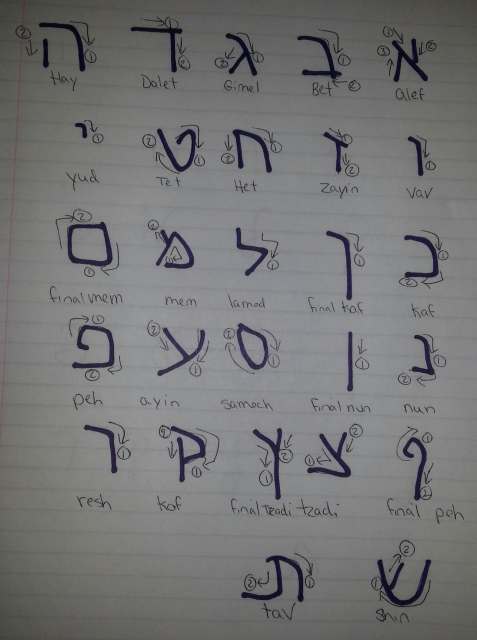 א ב ג ד ה
alef Bet Gimel Dalet Hay
ו ז ח ט י
vav zayin Het Tet yud
כ ך ל מ ם
kaf final kaf lamad mem final mem
נ ן ס ע פ
nun final nun samach ayin peh
ף צ ץ ק ר
final peh tzadi final Tzadi kof resh
ש ת
shin tav